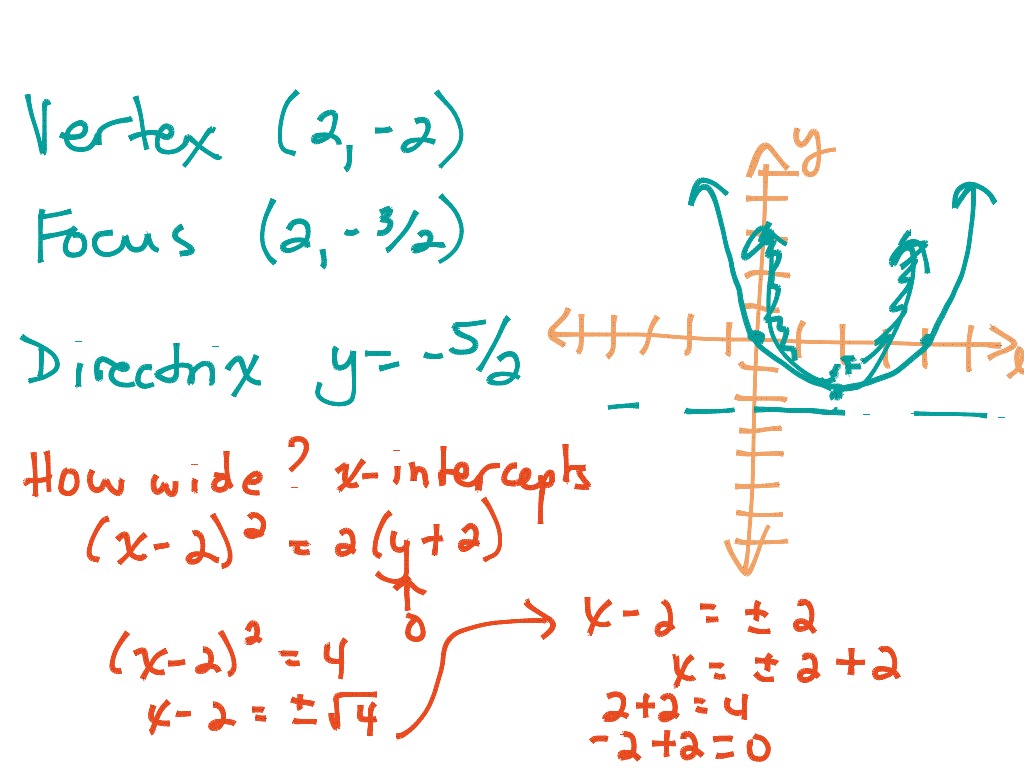 Vertex (2, -2)
Focus (2, -3/2)
Directrix y = -5/2
How wide? x-intercepts
(x-2)² = 2(y+2)
0
(x-2)² = 4
x-2 = ±√4
x-2 = ±2
x = ±2+2
2+2=4
-2+2=0
y
x
F